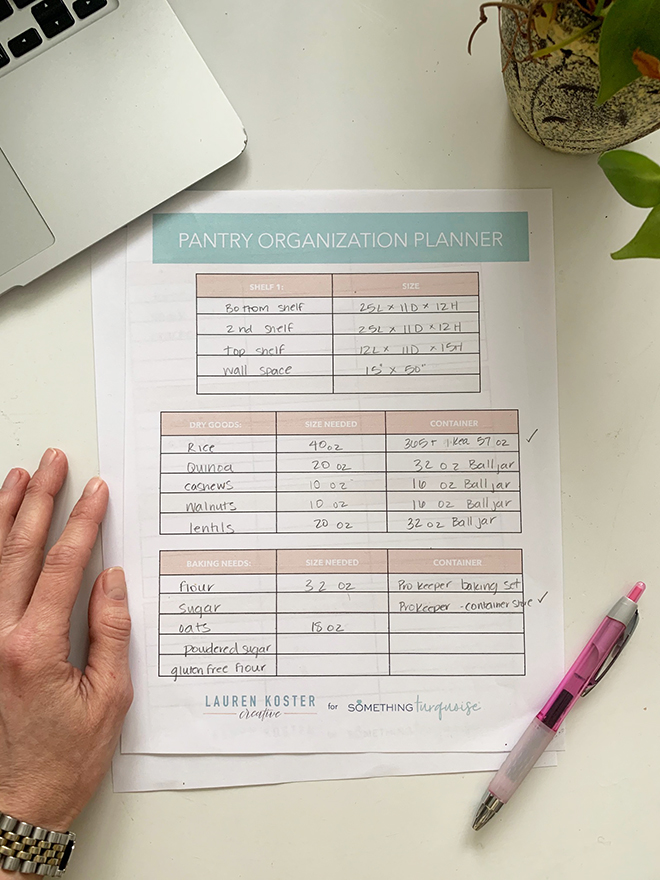 PANTRY ORGANIZATION PLANNER
SHELF 1: SIZE
Bottom shelf 25L x 11D x 12H
2nd shelf 25L x 11D x 12H
top shelf 12L x 11D x 15H
wall space 15" x 50"
DRY GOODS: SIZE NEEDED CONTAINER
Rice 40oz 365+ Ikea 57 oz ✓
Quinoa 20 oz 32 oz Ball jar
cashews 10 oz 16 oz Ball jar
walnuts 10 oz 16 oz Ball jar
lentils 20 oz 32 oz Ball jar
BAKING NEEDS: SIZE NEEDED CONTAINER
flour 32 oz Prokeeper baking set
sugar Prokeeper - container store ✓
oats 18 oz
powdered sugar
gluten free flour
LAUREN KOSTER creative for SOMETHING turquoise